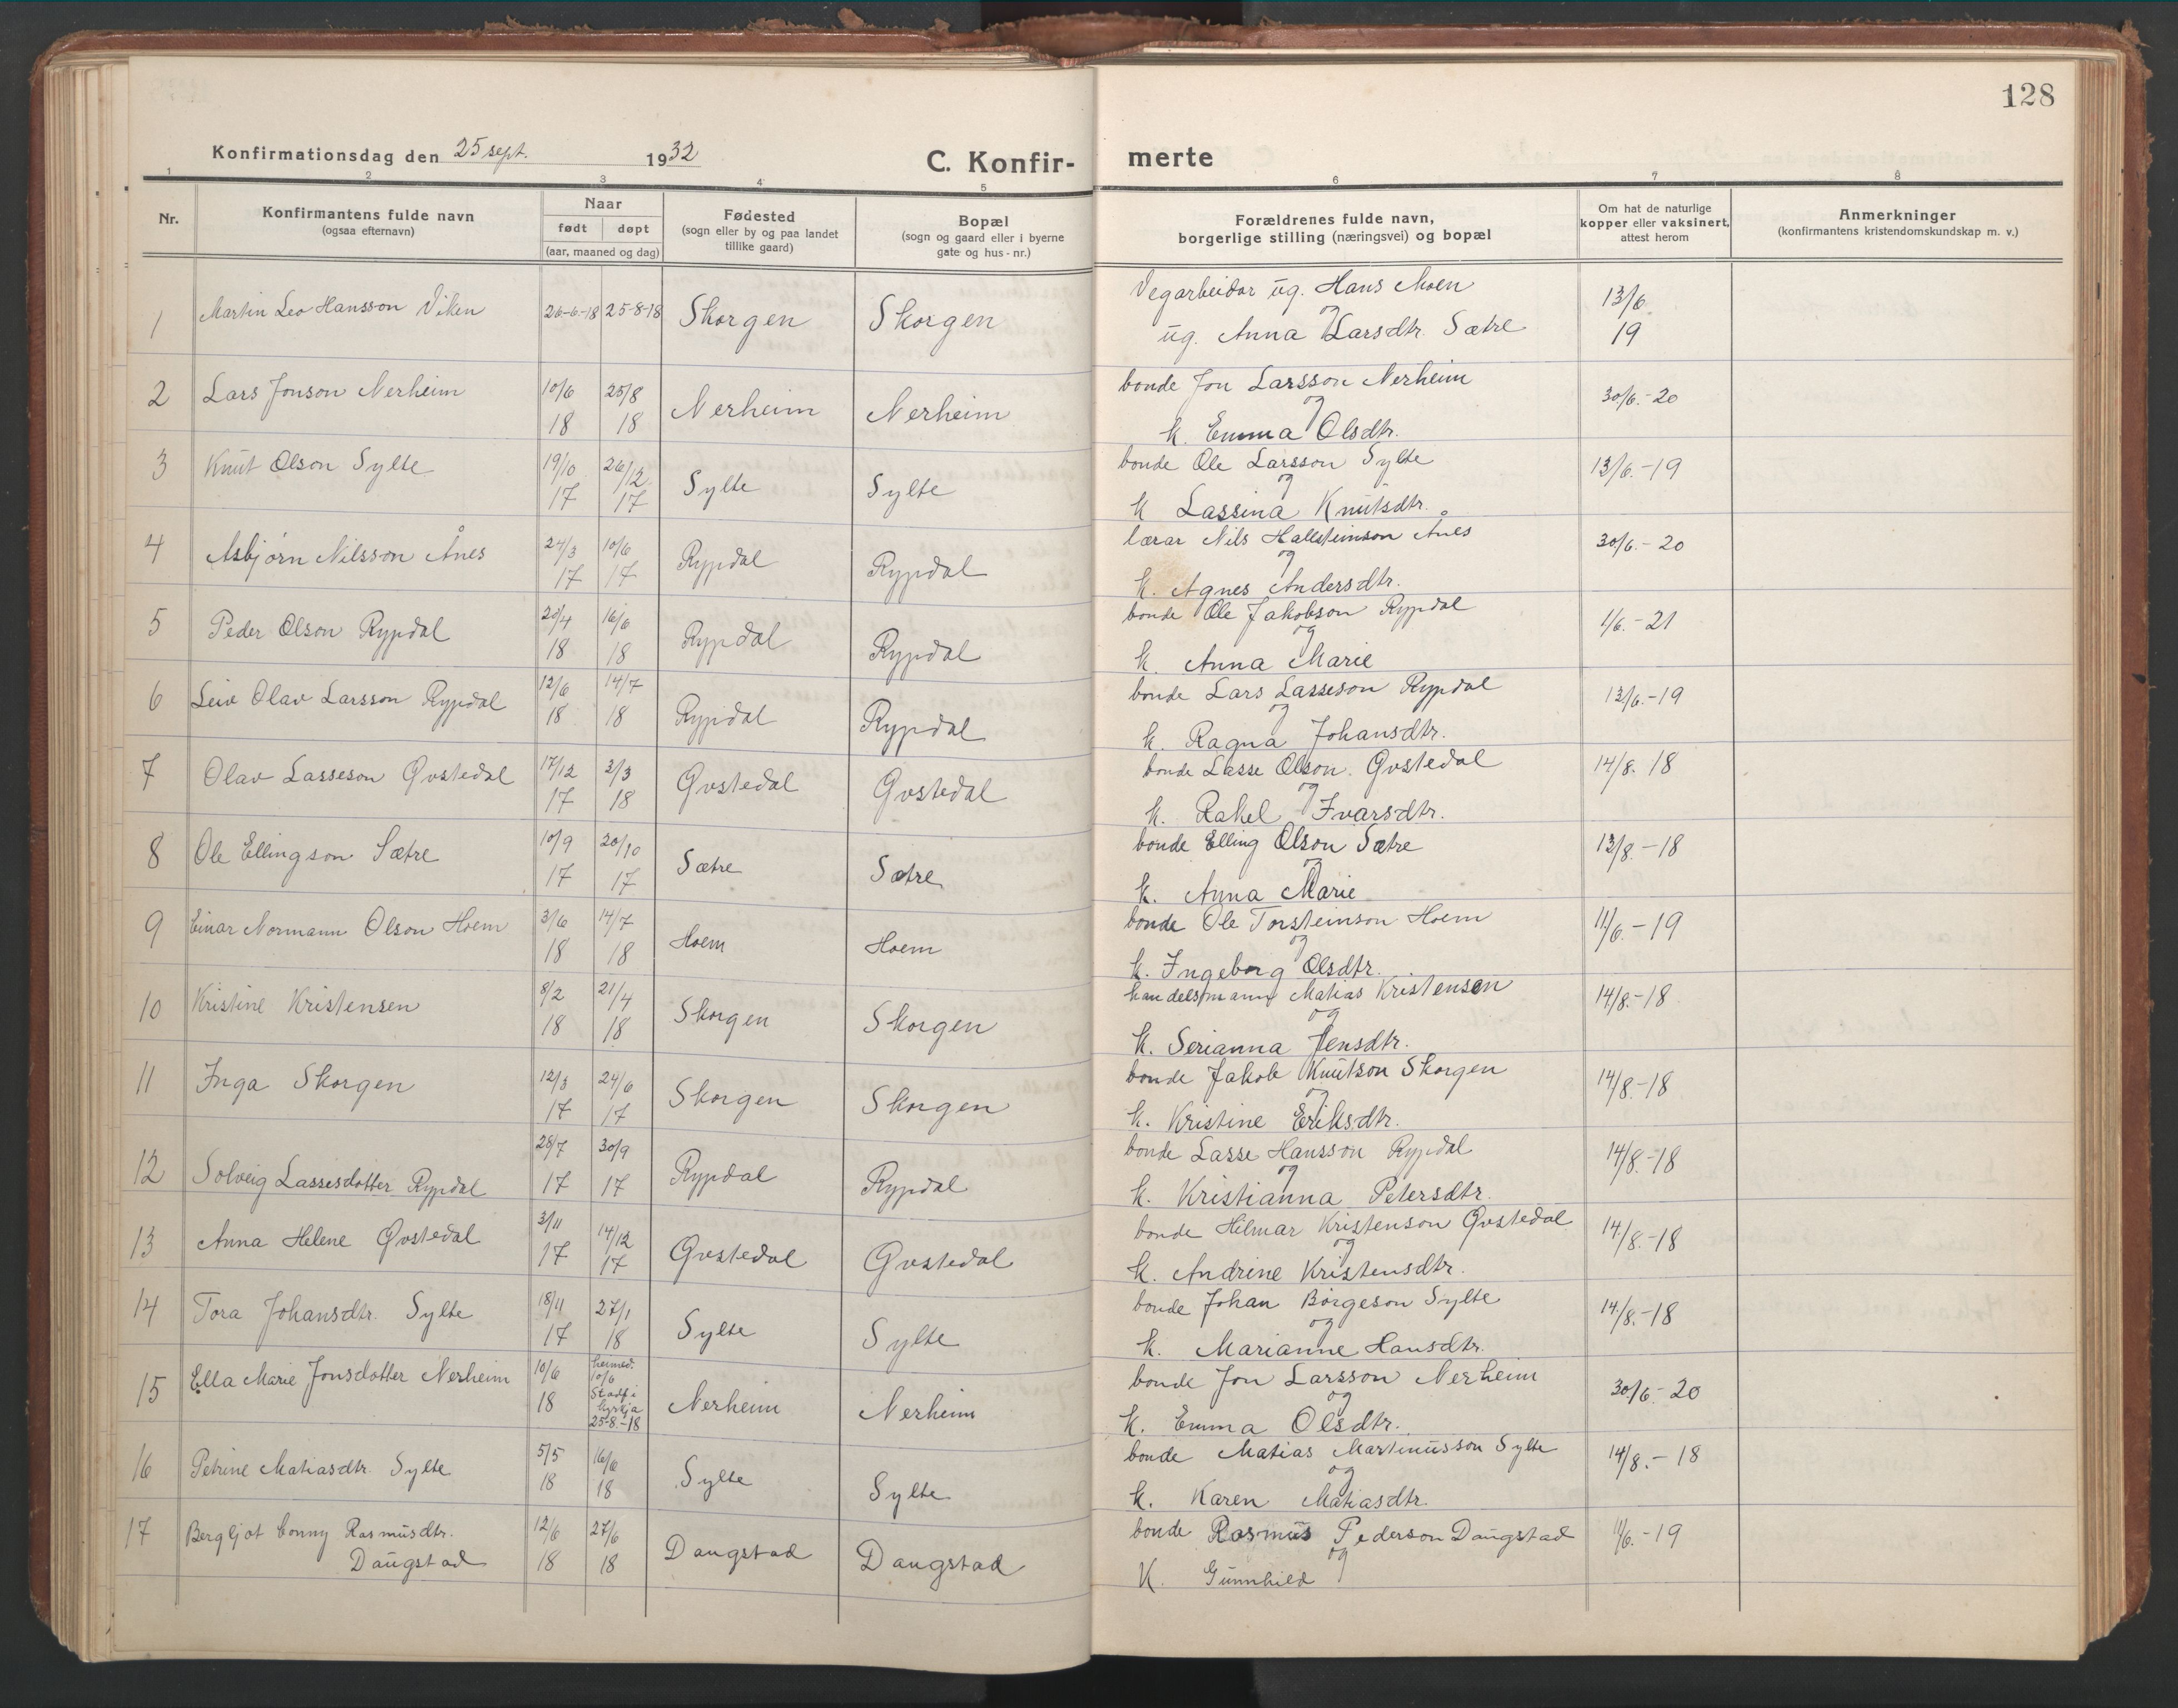 128
Konfirmationsdag den 25 sept. 1932
C. Konfir- merte
1 2 3 4 5 6 7 8
Nr.
Konfirmantens fulde navn
(ogsaa efternavn)
Naar
født døpt
(aar, maaned og dag)
Fødested
(sogn eller by og paa landet
tillike gaard)
Bopæl
(sogn og gaard eller i byerne
gate og hus-nr.)
Forældrenes fulde navn,
borgerlige stilling (næringsvei) og bopæl
Om hat de naturlige
kopper eller vaksinert,
attest herom
Anmerkninger
(konfirmantens kristendomskundskap m. v.)
1 Martin Leo Hansson Viken 26-6-18 25-8-18 Skorgen Skorgen Vegarbeidar ug. Hans Moen 13/6
og
ug. Anna Larsdtr. Sætre 19
2 Lars Jonson Nerheim 10/6 25/8 Nerheim Nerheim bonde Jon Larsson Nerheim 30/6.-20
og
18 18 k. Emma Olsdtr.
3 Knut Olson Sylte 19/10 26/12 Sylte Sylte bonde Ole Larsson Sylte 13/6.-19
og
17 17 k Lassina Knutsdtr.
4 Asbjørn Nilsson Ånes 24/3 10/6 Rypdal Rypdal lærar Nils Hallsteinson Ånes 30/6.-20
og
17 17 k. Agnes Andersdtr.
5 Peder Olson Rypdal 20/4 16/6 Rypdal Rypdal bonde Ole Jakobson Rypdal 1/6.-21
og
18 18 k. Anna Marie
6 Leiv Olav Larsson Rypdal 12/6 14/7 Rypdal Rypdal bonde Lars Lasseson Rypdal 13/6.-19
og
18 18 k. Ragna Johansdtr.
7 Olav Lasseson Øvstedal 17/12 3/3 Øvstedal Øvstedal bonde Lasse Olson Øvstedal 14/8. 18
og
17 18 k. Rakel Ivarsdtr.
8 Ole Ellingson Sætre 10/9 20/10 Sætre Sætre bonde Elling Olson Sætre 13/8.-18
og
17 17 k. Anna Marie
9 Einar Normann Olson Hoem 3/6 14/7 Hoem Hoem bonde Ole Torsteinson Hoem 11/6.-19
og
18 18 k. Ingeborg Olsdtr.
10 Kristine Kristensen 8/2 21/4 Skorgen Skorgen handelsmann Matias Kristensen 14/8.-18
og
18 18 k. Serianna Jensdtr.
11 Inga Skorgen 12/3 24/6 Skorgen Skorgen bonde Jakob Knutson Skorgen 14/8.-18
og
17 17 k. Kristine Eriksdtr.
12 Solveig Lassesdotter Rypdal 28/7 30/9 Rypdal Rypdal bonde Lasse Hansson Rypdal 14/8.-18
og
17 17 k. Kristianna Petersdtr.
13 Anna Helene Øvstedal 3/11 14/12 Øvstedal Øvstedal bonde Hilmar Kristenson Øvstedal 14/8.-18
og
17 17 k. Andrine Kristensdtr.
14 Tora Johansdtr. Sylte 18/11 27/1 Sylte Sylte bonde Johan Børgeson Sylte 14/8.-18
og
17 18 k. Marianne Hansdtr.
15 Ella Marie Jonsdotter Nerheim 10/6 heimed. 10/6 Nerheim Nerheim bonde Jon Larsson Nerheim 30/6.-20
og
18 Stadf. i kyrkja 25-8.-18 k. Emma Olsdtr.
16 Petrine Matiasdtr. Sylte 5/5 16/6 Sylte Sylte bonde Matias Martinusson Sylte 14/8.-18
og
18 18 k. Karen Matiasdtr.
17 Bergljot Conny Rasmusdtr. 12/6 27/6 Daugstad Daugstad bonde Rasmus Pederson Daugstad 11/6.-19
og
Daugstad 18 18 K. Gunnhild